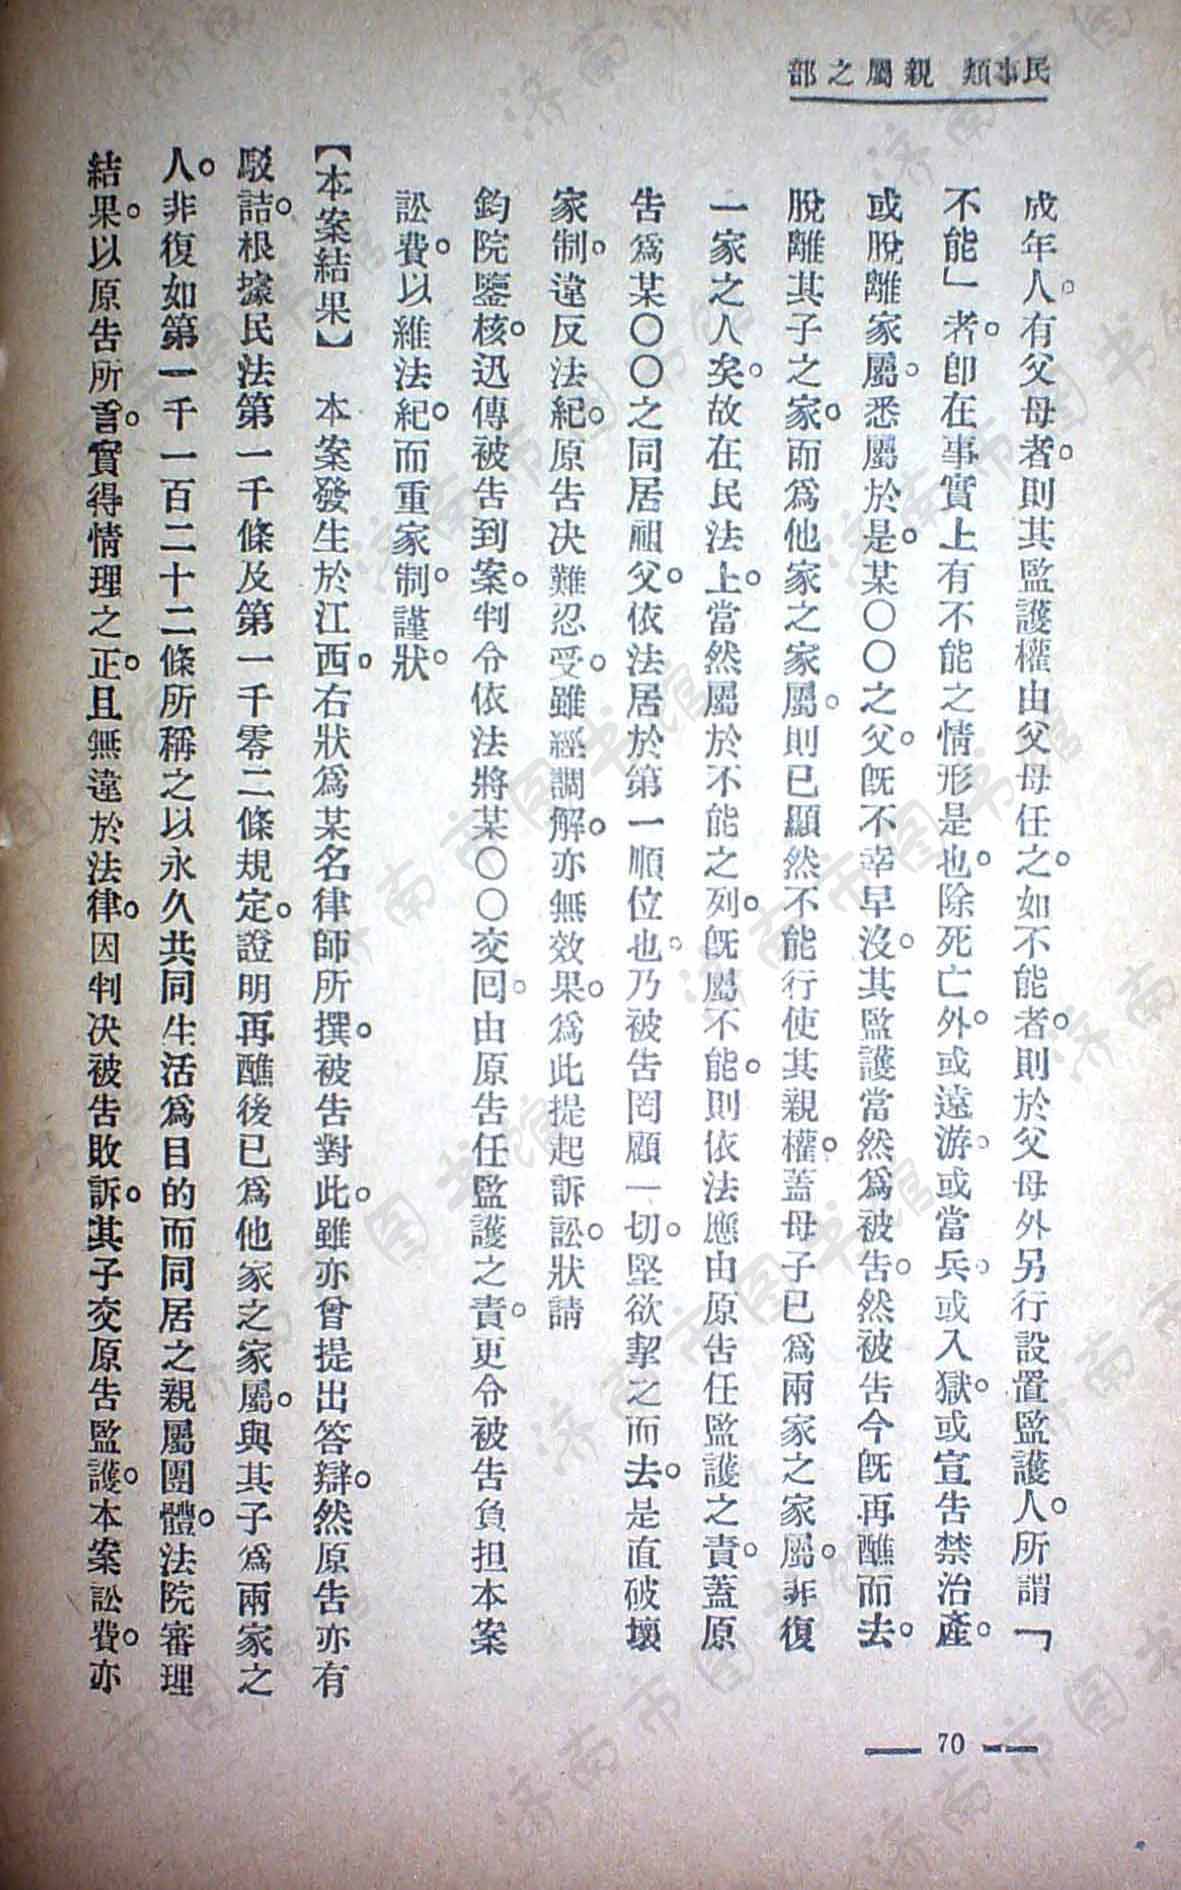 民事類　親屬之部
成年人。有父母者。則其監護權由父母任之。如不能者。則於父母外另行設置監護人。所謂「
不能」者。卽在事實上有不能之情形是也。除死亡外。或遠游。或當兵。或入獄。或宣告禁治產。
或脫離家屬。悉屬於是。某〇〇之父。旣不幸早沒。其監護當然爲被告。然被告今旣再醮而去。
脫離其子之家。而爲他家之家屬。則已顯然不能行使其親權。蓋母子已爲兩家之家屬。非復
一家之人矣。故在民法上。當然屬於不能之列。旣屬不能。則依法應由原告任監護之責。蓋原
告爲某〇〇之同居祖父。依法居於第一順位也。乃被告罔顧一切。堅欲挈之而去。是直破壞
家制。違反法紀。原告決難忍受。雖經調解。亦無效果。爲此提起訴訟。狀請
鈞院鑒核。迅傳被告到案。判令依法將某〇〇交回。由原告任監護之責。更令被告負担本案
訟費。以維法紀。而重家制。謹狀。
【本案結果】　本案發生於江西。右狀爲某名律師所撰。被告對此。雖亦曾提出答辯。然原告亦有
駁詰。根據民法第一千條及第一千零二條規定。證明再醮後已爲他家之家屬。與其子爲兩家之
人。非復如第一千一百二十二條所稱之以永久共同生活爲目的而同居之親屬團體。法院審理
結果。以原告所言。實得情理之正。且無違於法律。因判決被告敗訴。其子交原告監護。本案訟費。亦
70
济南市图书馆